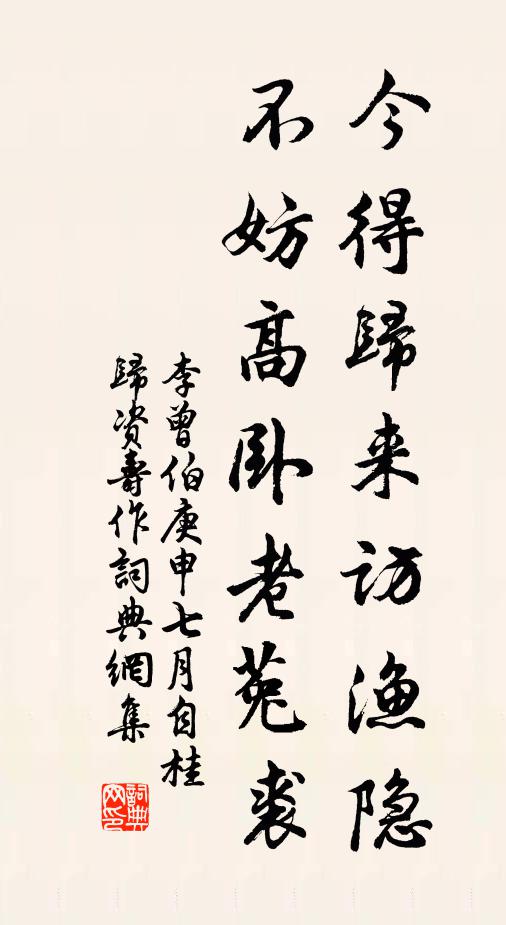 今得歸来访渔隐
不妨高卧老菟裘
李曾伯庚申七月自桂
歸资壽作詞典網集
詞典网印